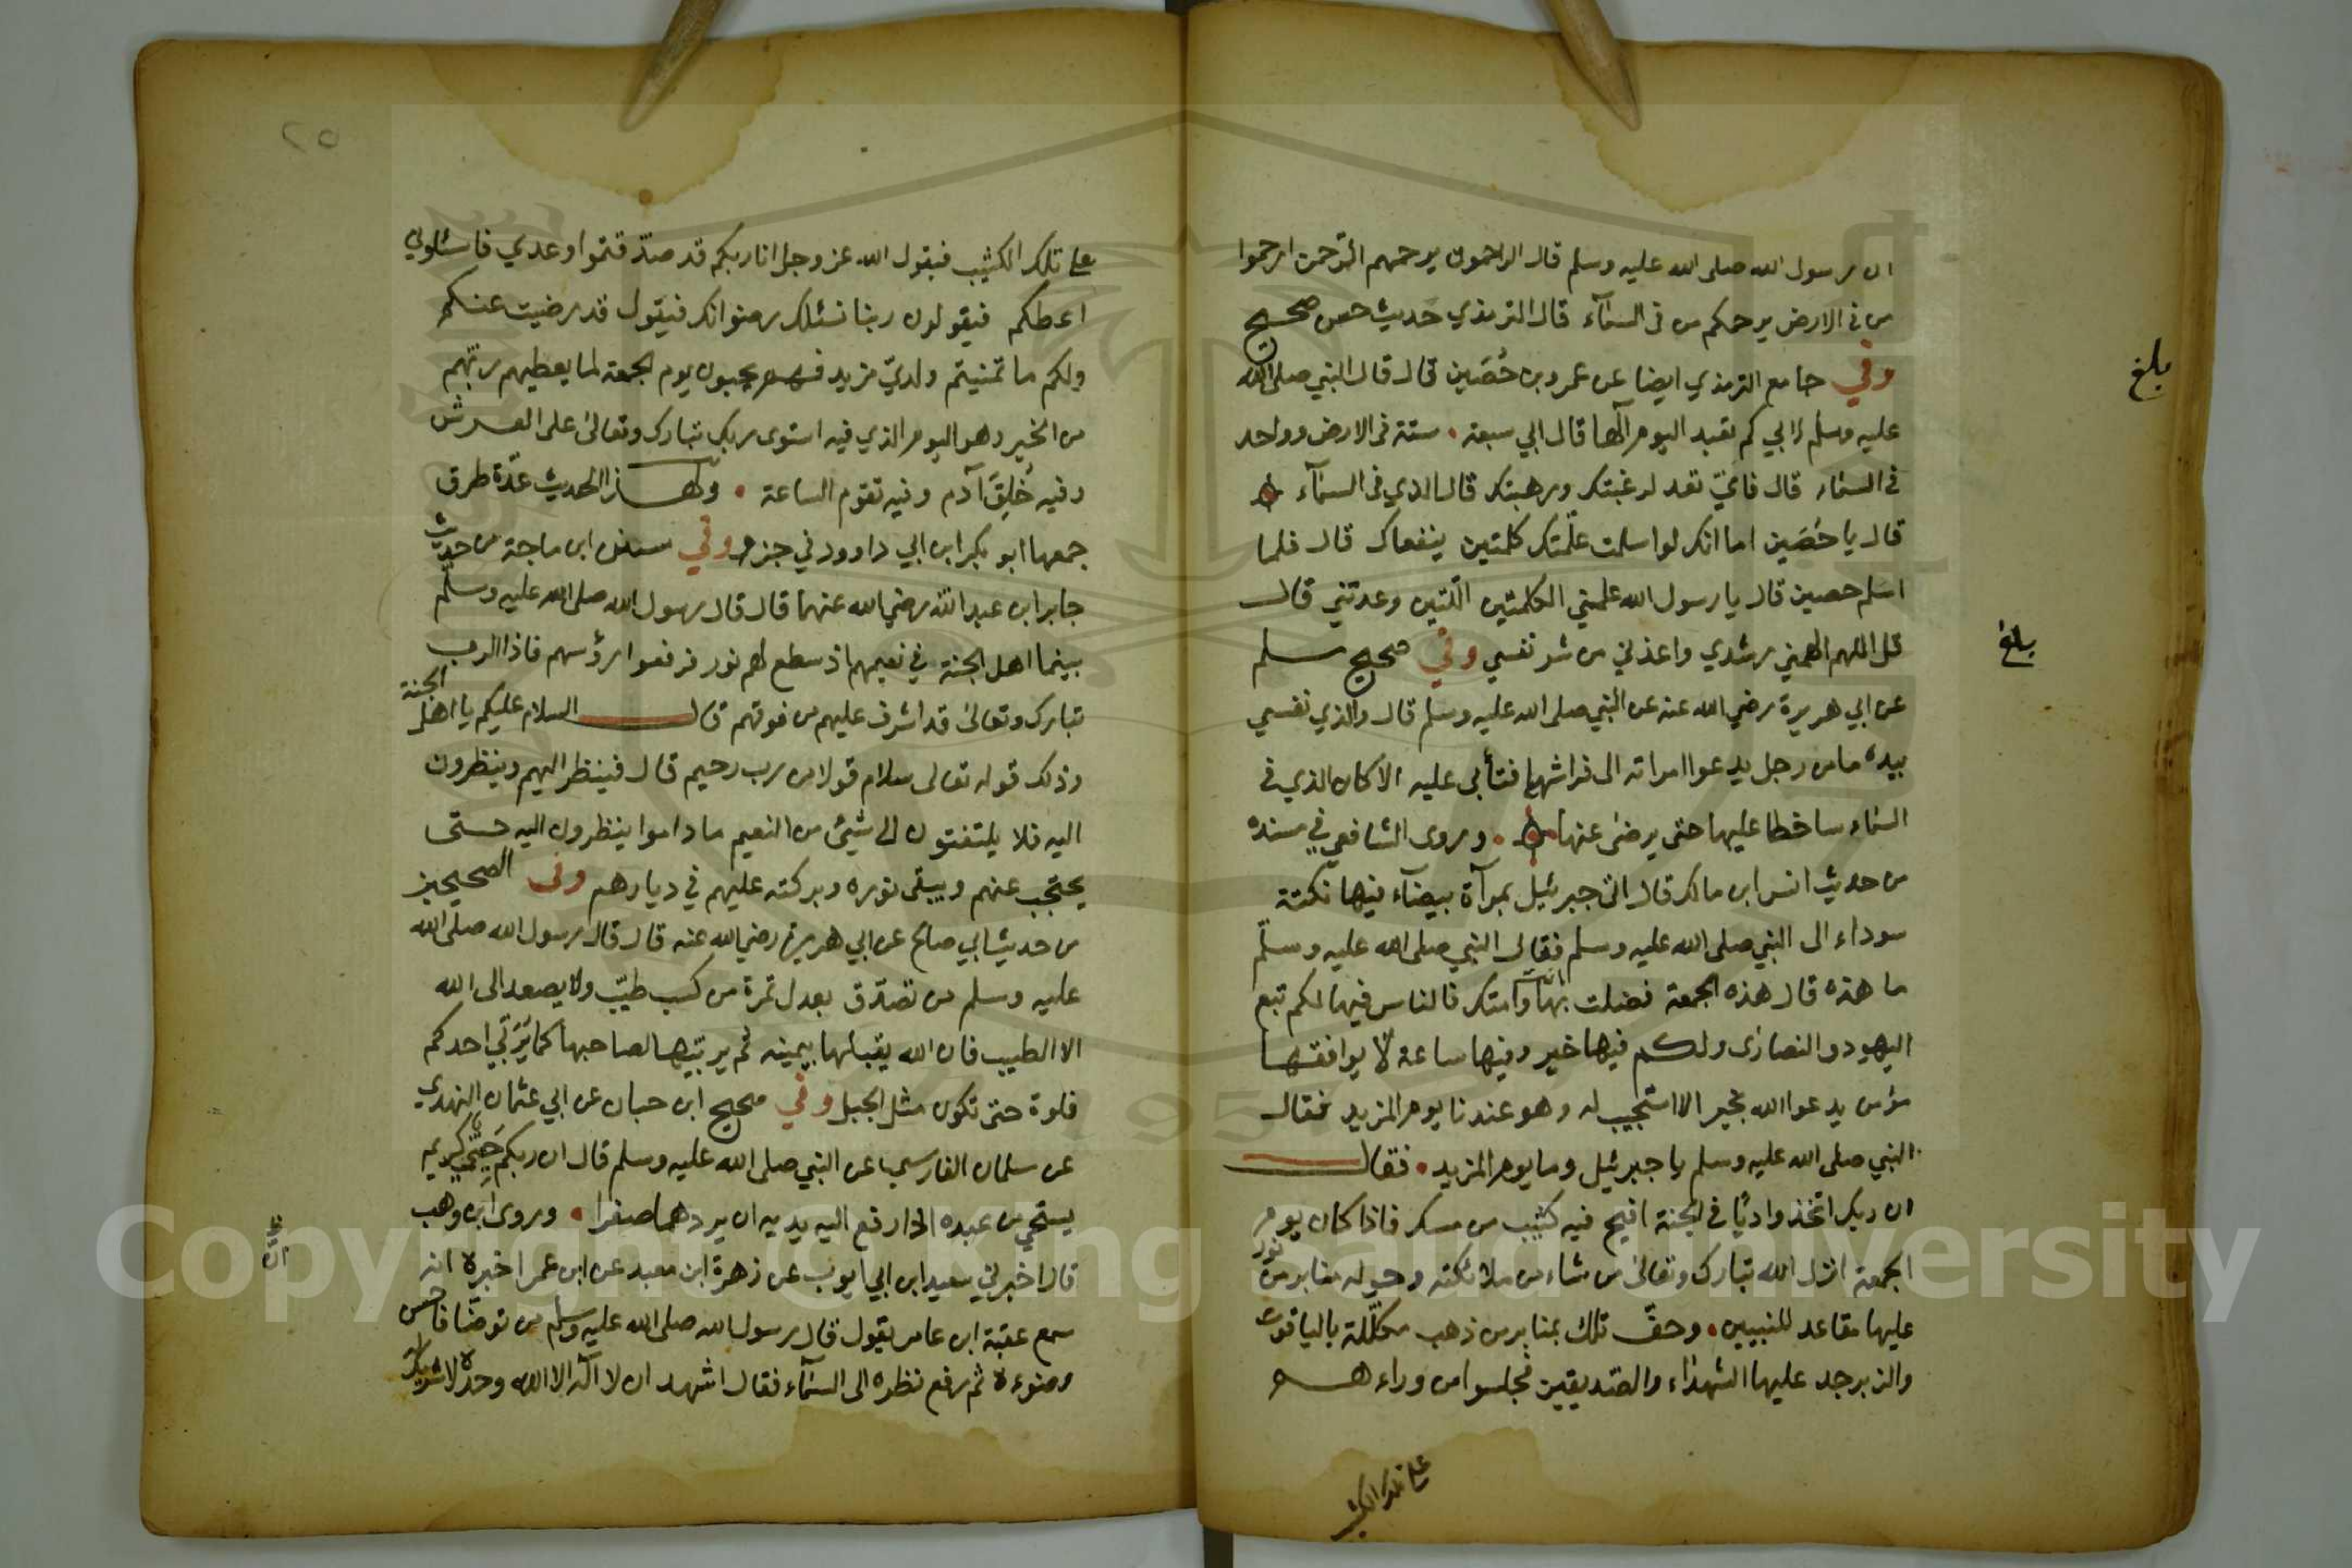 ان رسول الله صلى الله عليه وسلم قال الراحمون يرحمهم الرّحمن ارحموا
من في الارض يرحمكم من في السمآء قال الترمذي حديث حسن صحيح
وفي جامع الترمذي ايضا عن عمرو بن حُصَين قال قال النبي صلى الله
عليه وسلم لابي كم تعبد اليوم آلها قال ابي سبعة ستة في الارض وواحد
في السماء قال فايّ تعد لرغبتك ورهبتك قال الذي في السمآء
قال يا حُصَين اما انك لو اسلمت علّمتك كلمتين ينفعاك قال فلما
اسلم حصين قال يا رسول الله علمني الكلمتين الّلتين وعدتني قال
قل اللهم الهمني رشدي واعذني من شر نفسي وفي صحيح مسلم
عن ابي هريرة رضي الله عنه عن النبي صلى الله عليه وسلم قال والذي نفسي
بيده ما من رجل يدعوا امراته الى فراشها فتأبى عليه الا كان الذي في
السماء ساخطا عليها حتى يرضى عنها وروى الشافعي في مسنده
من حديث انس ابن مالك قال اتى جبرئيل بمرآة بيضآء فيها نكتة
سوداء الى النبي صلى الله عليه وسلم فقال النبي صلى الله عليه وسلّم
ما هذه قال هذه الجمعة فضلت بها وامتك فالناس فيها لكم تبع
اليهود والنصارى ولكم فيها خير وفيها ساعة لّا يوافقها
مؤمن يدعوا الله بخير الا استجيب له وهو عندنا يوم المزيد فقال
النبي صلى الله عليه وسلم يا جبرئيل وما يوم المزيد فقال
ان ربك اتخذ واديًا في الجنة افيح فيه كثيب من مسك فاذا كان يوم
الجمعة انزل الله تبارك وتعالى من شاء من ملائكته وحوله منابر من نور
عليها مقاعد للنبيين وحفّ تلك بمنابر من ذهب مكلّلة بالياقوت
والزبرجد عليها الشهداء والصّديقين فجلسوا من وراءهم
على تلك الكثيب
بلغ
بلغ
٢٥
على تلك الكثيب فيقول الله عز وجل انا ربكم قد صدّقتموا وعدي فاسئلوني
اعطكم فيقولون ربنا نسئلك رضوانك فيقول قد رضيت عنكم
ولكم ما تمنيتم ولديّ مزيد فهم يحبون يوم الجمعة لما يعطيهم ربّهم
من الخير وهو اليوم الذي فيه استوى ربك تبارك وتعالى على العرش
وفيه خُلِقَ آدم وفيه تقوم الساعة ولهذا الحديث عدّة طرق
جمعها ابو بكر ابن ابي داوود في جزء وفي سنن ابن ماجة من حديث
جابر ابن عبد الله رضي الله عنهما قال قال رسول الله صلى الله عليه وسلّم
بينما اهل الجنة في نعيمهم اذ سطع لهم نور فرفعوا رؤسهم فاذا الرب
تبارك وتعالى قد اشرف عليهم من فوقهم قال السلام عليكم يا اهل الجنة
وذلك قوله تعالى سلام قولا من رب رحيم قال فينظر اليهم وينظرون
اليه فلا يلتفتون الى شيئ من النعيم ما داموا ينظرون اليه حتى
يحتجب عنهم ويبقى نوره وبركته عليهم في ديارهم وفي الصحيحين
من حديث ابي صالح عن ابي هريرة رضي الله عنه قال قال رسول الله صلى الله
عليه وسلم من تصدّق بعدل تمرة من كسب طيّب ولا يصعد الى الله
الا الطيب فان الله يقبلها بيمينه ثم يربّيها لصاحبها كما يُرَبّي احدكم
فلوة حتى تكون مثل الجبل وفي صحيح ابن حبان عن ابي عثمان النهدي
عن سلمان الفارسي عن النبي صلى الله عليه وسلم قال ان ربكم حَيِيّ كريم
يستحي من عبده اذا رفع اليه يديه ان يردهما صفرا وروى ابن وهب
قال اخبرني سعيد ابن ابي ايوب عن زهرة ابن معبد عن ابن عمر اخبره انه
سمع عقبة ابن عامر يقول قال رسول الله صلى الله عليه وسلم من توضّا فاحسن
وضوءه ثم رفع نظره الى السمآء فقال اشهد ان لا اله الا الله وحده لا شريك له